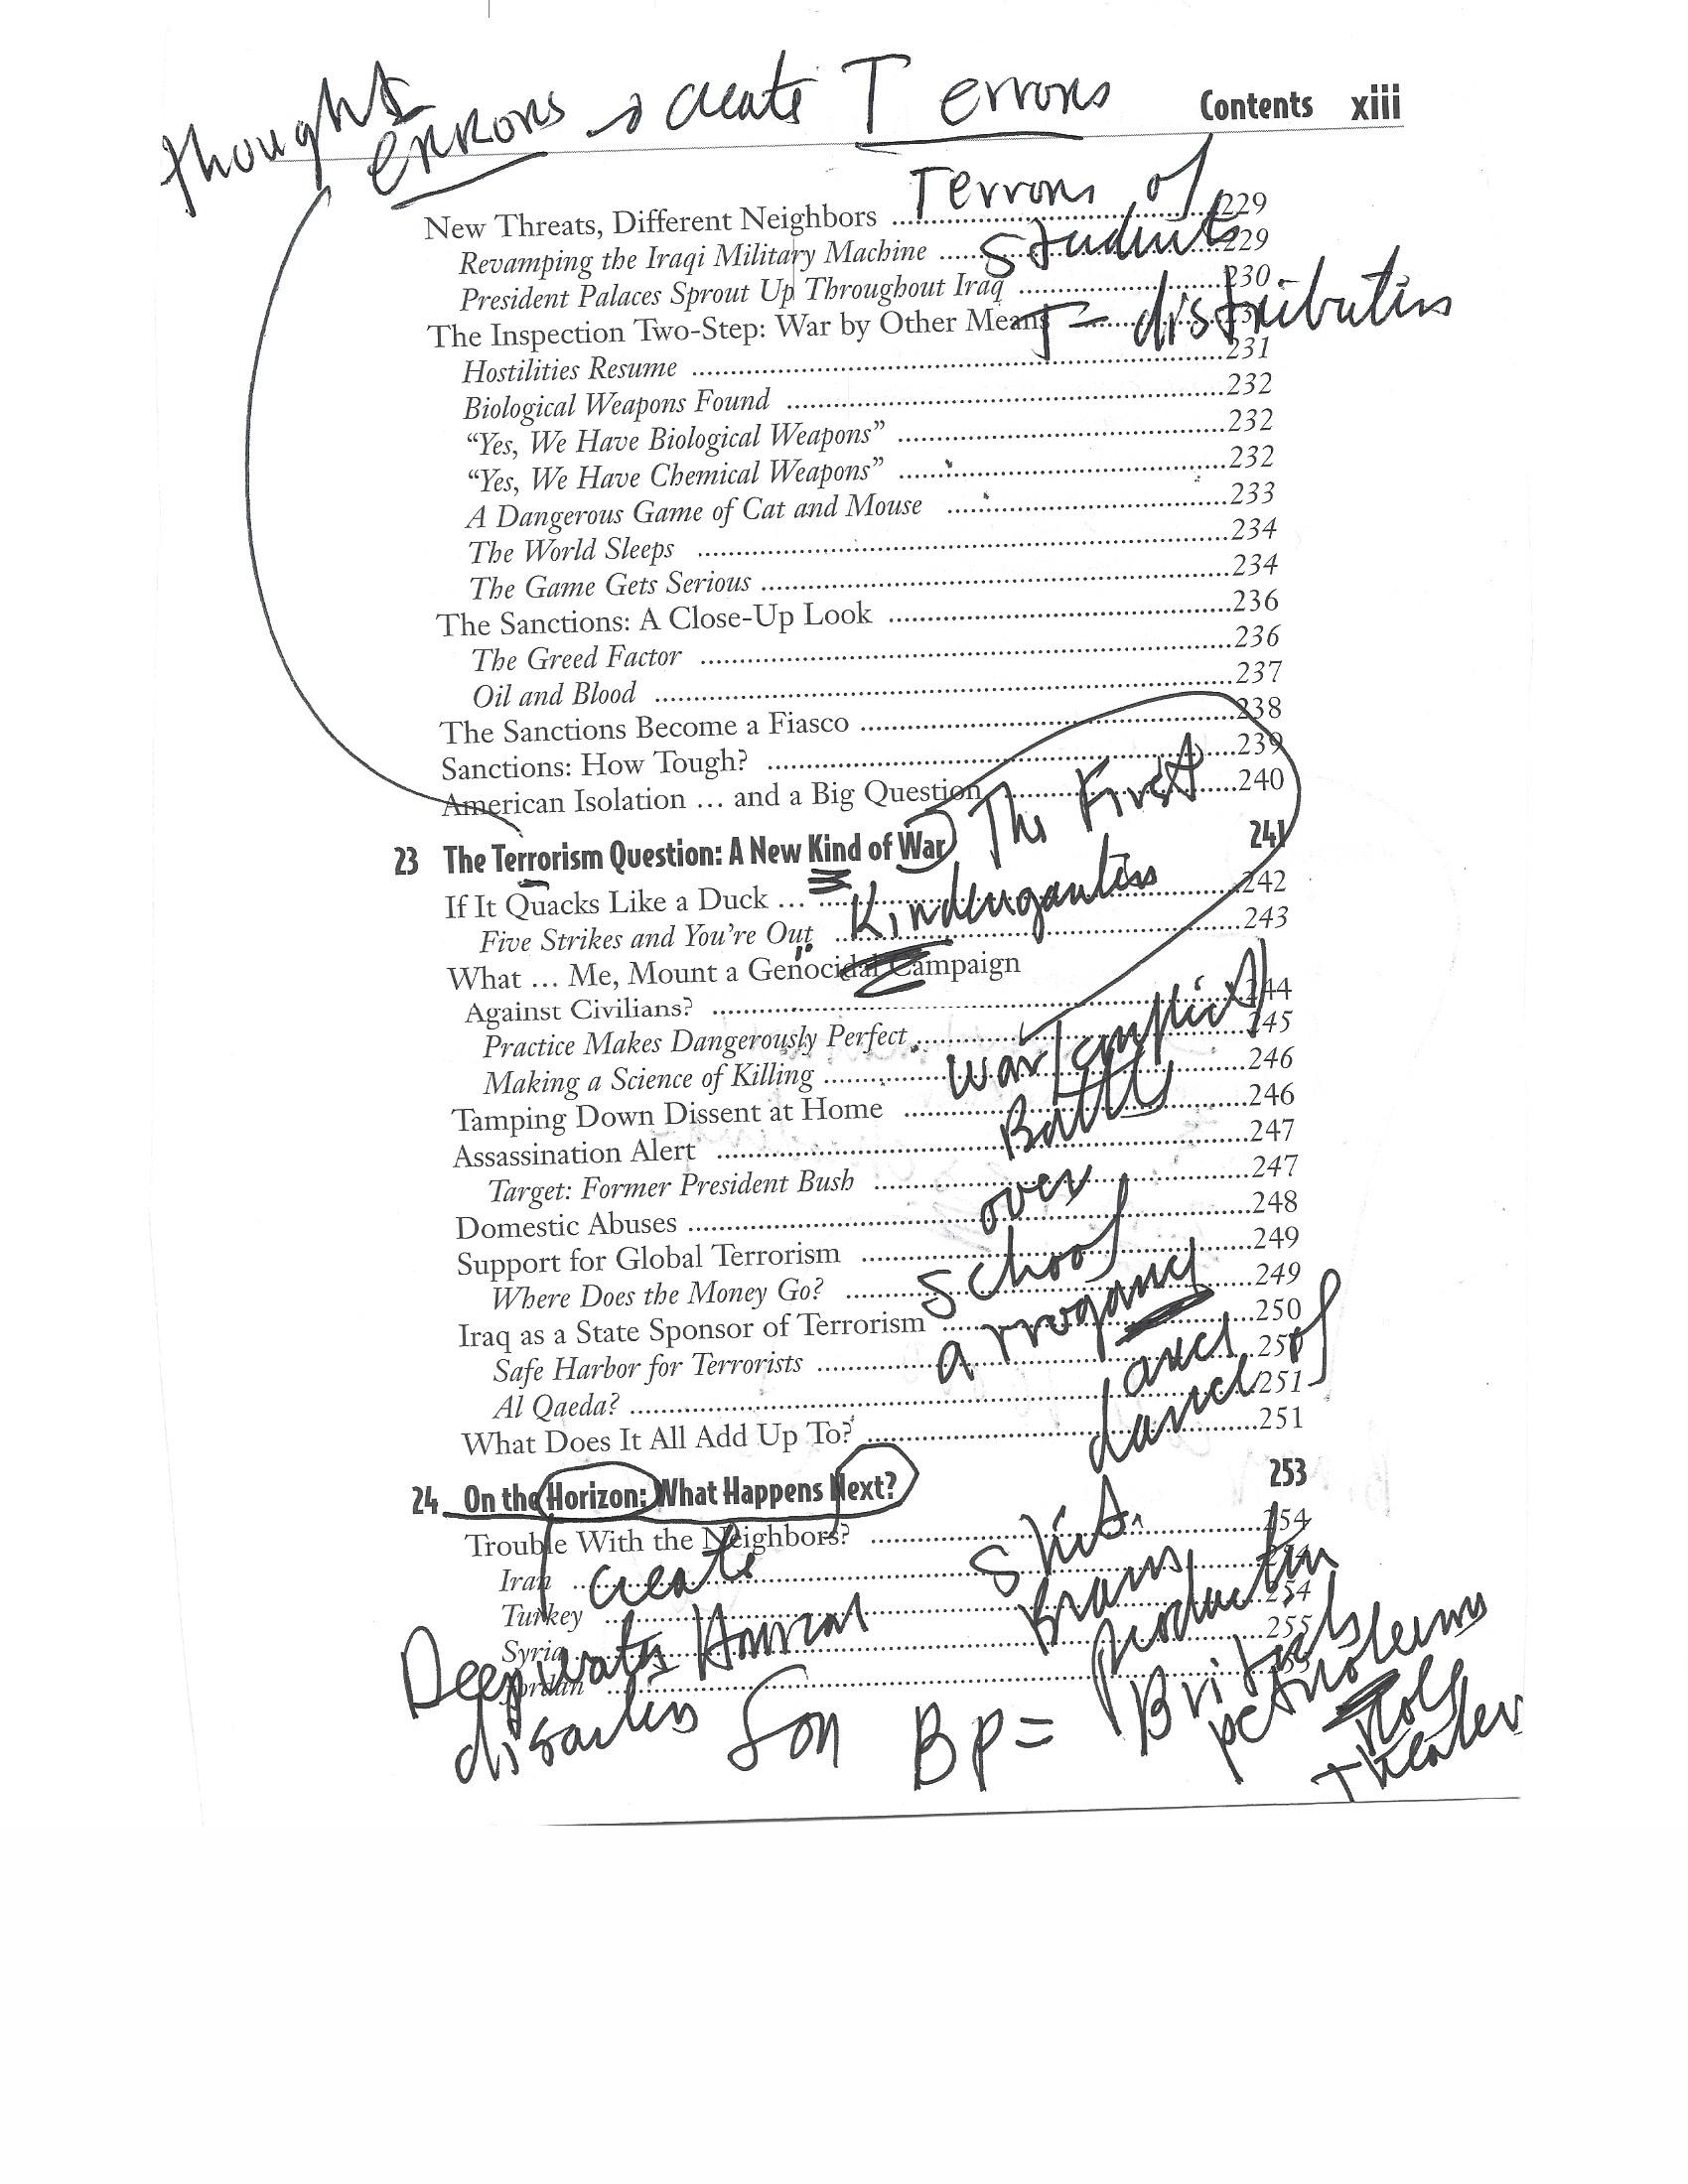 thoughts
errors → create T errors
Contents xiii
Terrors of
students
T = distributions
New Threats, Different Neighbors ....................229
Revamping the Iraqi Military Machine ....................229
President Palaces Sprout Up Throughout Iraq ....................230
The Inspection Two-Step: War by Other Means
Hostilities Resume ....................231
Biological Weapons Found ....................232
“Yes, We Have Biological Weapons” ....................232
“Yes, We Have Chemical Weapons” ....................232
A Dangerous Game of Cat and Mouse ....................233
The World Sleeps ....................234
The Game Gets Serious ....................234
The Sanctions: A Close-Up Look ....................236
The Greed Factor ....................236
Oil and Blood ....................237
The Sanctions Become a Fiasco ....................238
Sanctions: How Tough? ....................239
American Isolation … and a Big Question ....................240
23 The Terrorism Question: A New Kind of War 241
The First
Kindergantins
If It Quacks Like a Duck … ....................242
Five Strikes and You’re Out ....................243
What … Me, Mount a Genocidal Campaign
Against Civilians? ....................244
Practice Makes Dangerously Perfect ....................245
Making a Science of Killing ....................246
Tamping Down Dissent at Home ....................246
Assassination Alert ....................247
Target: Former President Bush ....................247
Domestic Abuses ....................248
Support for Global Terrorism ....................249
Where Does the Money Go? ....................249
Iraq as a State Sponsor of Terrorism ....................250
Safe Harbor for Terrorists ....................250
Al Qaeda? ....................251
What Does It All Add Up To? ....................251
war/conflict/
Battle
over
school
arrogancy
and of
24 On the Horizon: What Happens Next? 253
Trouble With the Neighbors? ....................254
Iran ....................254
Turkey ....................254
Syria ....................255
Jordan ....................255
create
Deepwater Horizon
disasters for BP =
Brains
production
British
petroleums
theater